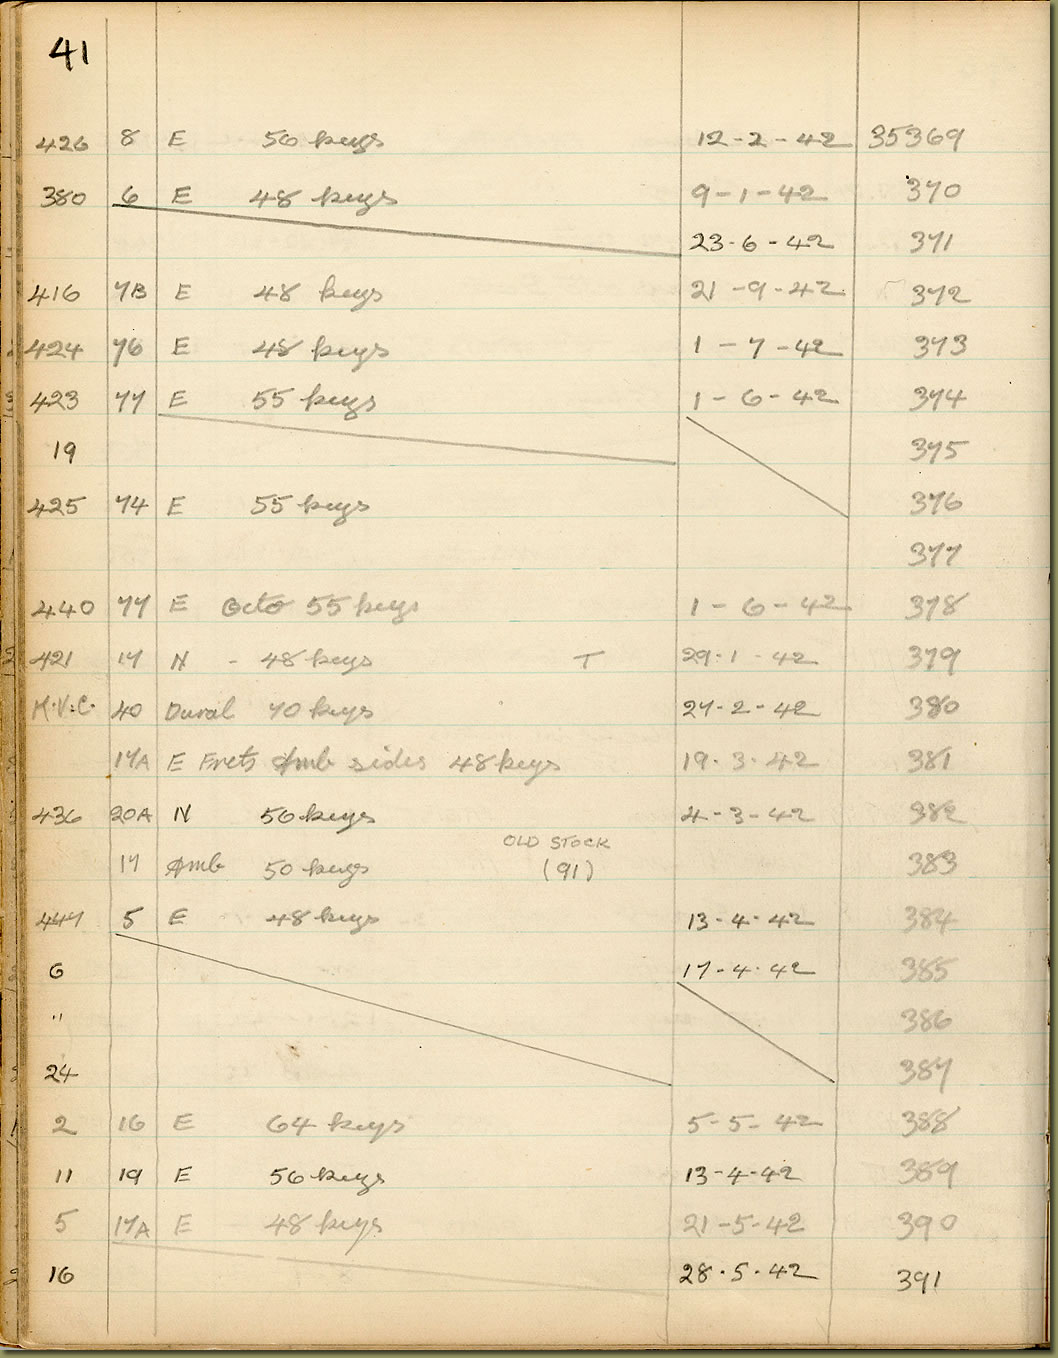 41
426 8 E 56 keys 12-2-42 35369
380 6 E 48 keys 9-1-42 370
23-6-42 371
416 7B E 48 keys 21-9-42 372
424 76 E 48 keys 1-7-42 373
423 77 E 55 keys 1-6-42 374
19 375
425 74 E 55 keys 376
377
440 77 E Octo 55 keys 1-6-42 378
421 17 N - 48 keys T 29-1-42 379
K.V.C. 40 Dural 70 keys 27-2-42 380
17A E Frets Amb sides 48 keys 19-3-42 381
436 20A N 56 keys 4-3-42 382
OLD STOCK
17 Amb 50 keys (91) 383
447 5 E 48 keys 13-4-42 384
6 17-4-42 385
" 386
24 387
2 16 E 64 keys 5-5-42 388
11 19 E 56 keys 13-4-42 389
5 17A E 48 keys 21-5-42 390
16 28-5-42 391